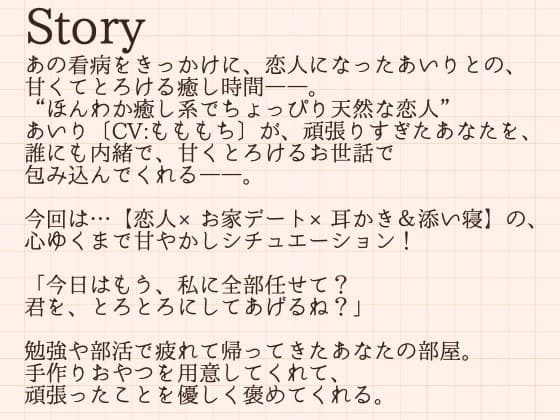 Story
あの看病をきっかけに、恋人になったあいりとの、
甘くてとろける癒し時間——。
“ほんわか癒し系でちょっぴり天然な恋人”
あいり〔CV:もももち〕が、頑張りすぎたあなたを、
誰にも内緒で、甘くとろけるお世話で
包み込んでくれる——。
今回は…【恋人× お家デート× 耳かき＆添い寝】の、
心ゆくまで甘やかしシチュエーション！
「今日はもう、私に全部任せて？
君を、とろとろにしてあげるね？」
勉強や部活で疲れて帰ってきたあなたの部屋。
手作りおやつを用意してくれて、
頑張ったことを優しく褒めてくれる。